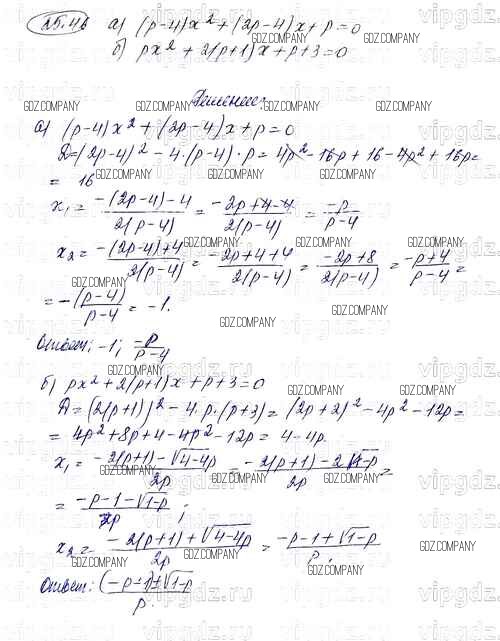 25.46 а) (p-4)x² + (2p-4)x + p = 0
б) px² + 2(p+1)x + p + 3 = 0
Решение:
а) (p-4)x² + (2p-4)x + p = 0
D = (2p-4)² - 4·(p-4)·p = 4p² - 16p + 16 - 4p² + 16p =
= 16
x₁ = (-(2p-4) - 4)/(2(p-4)) = (-2p+4-4)/(2(p-4)) = -p/(p-4)
x₂ = (-(2p-4)+4)/(2(p-4)) = (-2p+4+4)/(2(p-4)) = (-2p+8)/(2(p-4)) = (-p+4)/(p-4) =
= -(p-4)/(p-4) = -1.
Ответ: -1; -p/(p-4)
б) px² + 2(p+1)x + p + 3 = 0
D = (2(p+1))² - 4·p·(p+3) = (2p+2)² - 4p² - 12p =
= 4p² + 8p + 4 - 4p² - 12p = 4 - 4p.
x₁ = (-2(p+1) - √(4-4p))/(2p) = (-2(p+1) - 2√(1-p))/(2p) =
= (-p-1-√(1-p))/(2p);
x₂ = (-2(p+1) + √(4-4p))/(2p) = (-p-1+√(1-p))/p.
Ответ: (-p-1)±√(1-p)/p.
GDZ.COMPANY
vipgdz.ru